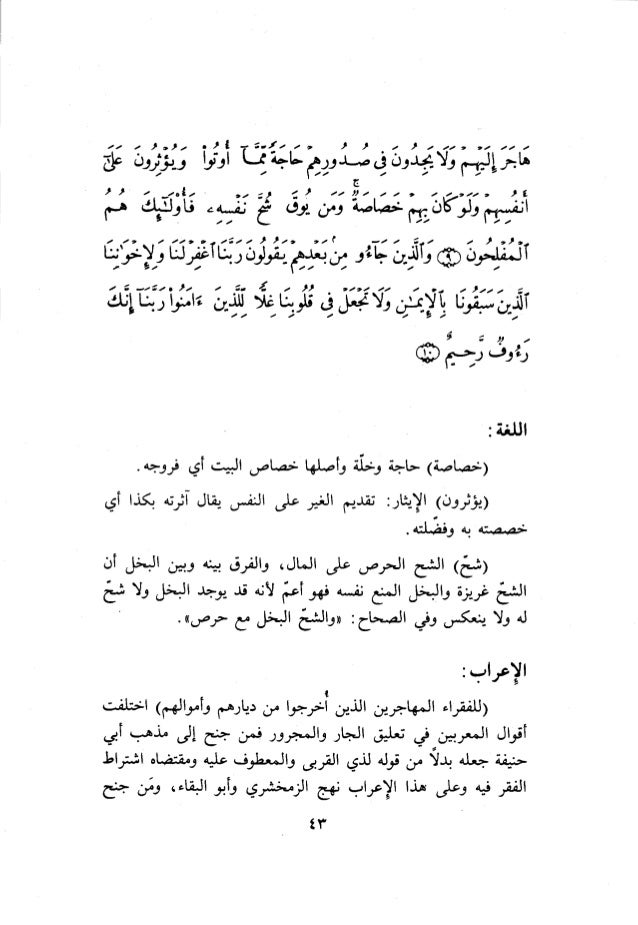 هَاجَرَ إِلَيْهِمْ وَلَا يَجِدُونَ فِى صُدُورِهِمْ حَاجَةً مِّمَّآ أُوتُوا۟ وَيُؤْثِرُونَ عَلَىٰٓ
أَنفُسِهِمْ وَلَوْ كَانَ بِهِمْ خَصَاصَةٌ ۚ وَمَن يُوقَ شُحَّ نَفْسِهِۦ فَأُو۟لَـٰٓئِكَ هُمُ
ٱلْمُفْلِحُونَ ﴿٩﴾ وَٱلَّذِينَ جَآءُو مِنۢ بَعْدِهِمْ يَقُولُونَ رَبَّنَا ٱغْفِرْ لَنَا وَلِإِخْوَٰنِنَا
ٱلَّذِينَ سَبَقُونَا بِٱلْإِيمَـٰنِ وَلَا تَجْعَلْ فِى قُلُوبِنَا غِلًّا لِّلَّذِينَ ءَامَنُوا۟ رَبَّنَآ إِنَّكَ
رَءُوفٌ رَّحِيمٌ ﴿١٠﴾
اللغة:
(خصاصة) حاجة وخلّة وأصلها خصاص البيت أي فروجه.
(يؤثرون) الإيثار: تقديم الغير على النفس يقال آثرته بكذا أي
خصصته به وفضّلته.
(شحّ) الشح الحرص على المال، والفرق بينه وبين البخل أن
الشحّ غريزة والبخل المنع نفسه فهو أعمّ لأنه قد يوجد البخل ولا شحّ
له ولا ينعكس وفي الصحاح: «والشحّ البخل مع حرص».
الإعراب:
(للفقراء المهاجرين الذين أُخرجوا من ديارهم وأموالهم) اختلفت
أقوال المعربين في تعليق الجار والمجرور فمن جنح إلى مذهب أبي
حنيفة جعله بدلاً من قوله لذي القربى والمعطوف عليه ومقتضاه اشتراط
الفقر فيه وعلى هذا الإعراب نهج الزمخشري وأبو البقاء، ومَن جنح
٤٣